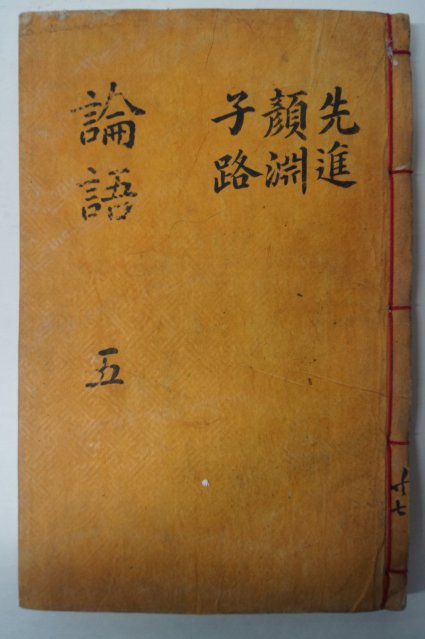 先進
顏淵
子路
論語
五
共七